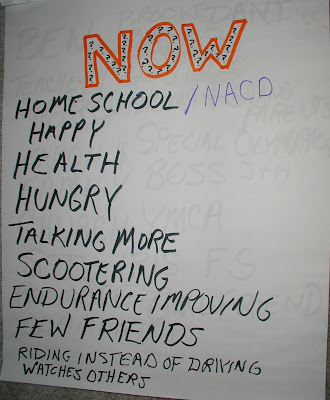 NOW
HOME SCHOOL / NACD
HAPPY
HEALTH
HUNGRY
TALKING MORE
SCOOTERING
ENDURANCE IMPOVING
FEW FRIENDS
RIDING INSTEAD OF DRIVING
WATCHES OTHERS
SPECIAL OLYMPICS
BOSS
YMCA
FS